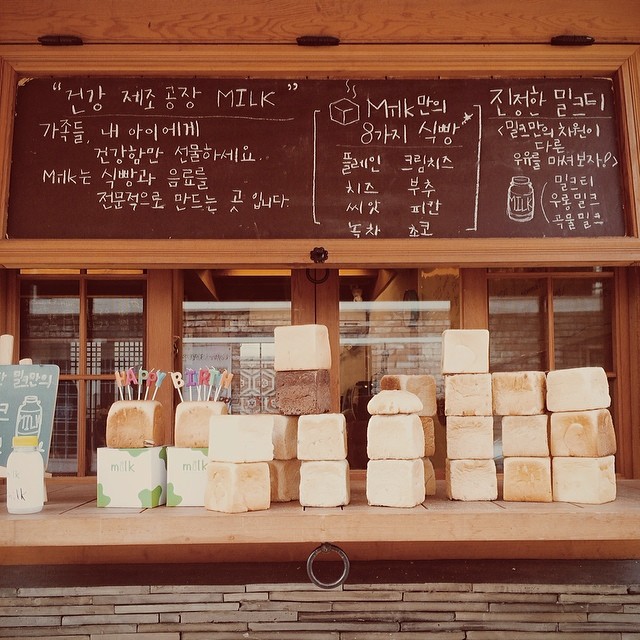 "건강 제조공장 MILK"
가족들, 내 아이에게
건강함만 선물하세요.
Milk는 식빵과 음료를
전문적으로 만드는 곳 입니다.
Milk만의
8가지 식빵
플레인 크림치즈
치즈 부추
씨앗 피칸
녹차 초코
진정한 밀크티
<밀크만의 차원이
다른
우유를 마셔보자!>
밀크티
우롱밀크
곡물밀크
밀크만의
HAPPY BIRTH
milk
milk